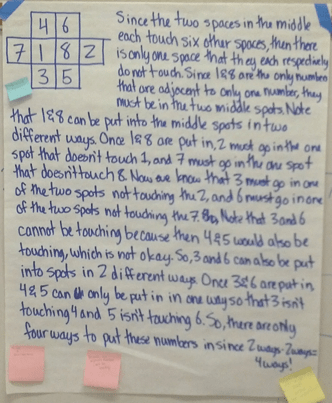 4 6
7 1 8 2
3 5
Since the two spaces in the middle
each touch six other spaces, then there
is only one space that they each respectively
do not touch. Since 1&8 are the only numbers
that are adjacent to only one number, they
must be in the two middle spots. Note
that 1&8 can be put into the middle spots in two
different ways. Once 1&8 are put in, 2 must go in the one
spot that doesn't touch 1, and 7 must go in the one spot
that doesn't touch 8. Now we know that 3 must go in one
of the two spots not touching the 2, and 6 must go in one
of the two spots not touching the 7. Note that 3 and 6
cannot be touching because then 4&5 would also be
touching, which is not okay. So, 3 and 6 can also be put
into spots in 2 different ways. Once 3&6 are put in,
4&5 can only be put in in one way so that 3 isn't
touching 4 and 5 isn't touching 6. So, there are only
four ways to put these numbers in since 2 ways · 2 ways =
4 ways!